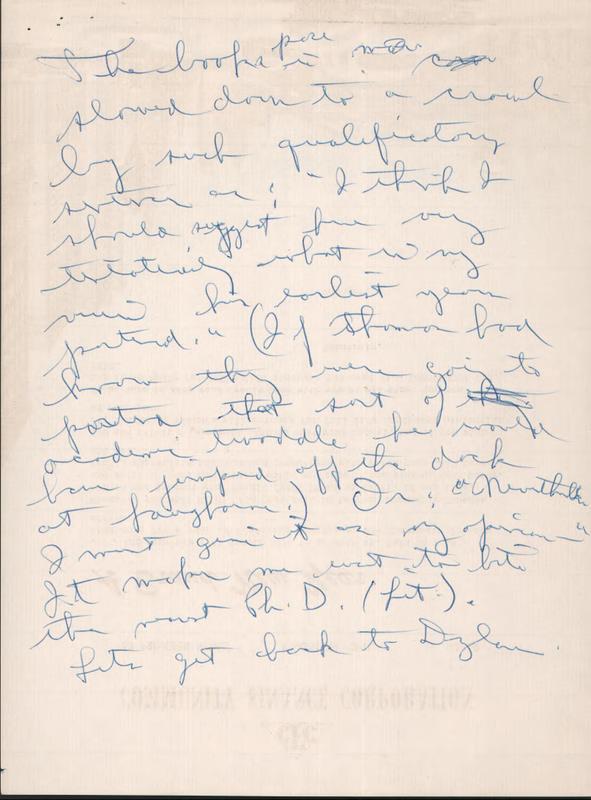 The book's pace is
slowed down to a crawl
by such qualificatory
as: "I think I
should suggest here very
tentatively what in my
view his earliest years
portend." (If Thomas had
known they were going to
portend that sort of
academic twaddle he would
have jumped off the dock
at Laugharne.) Or: "Nevertheless
I must give it as my opinion—"
It makes me want to bite
the nearest Ph.D. (Lit.).
Lets get back to Dylan.
COMMUNITY FINANCE CORPORATION